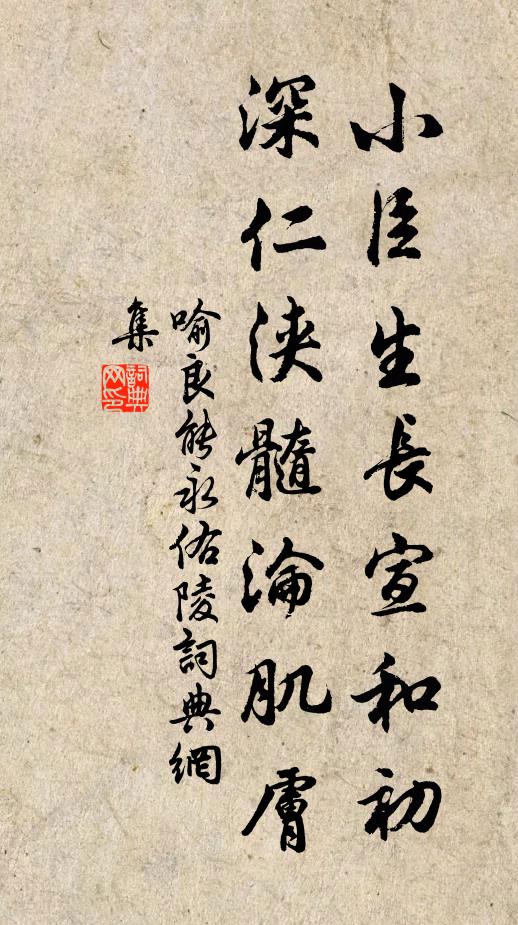 小臣生長宣和初
深仁浹髓淪肌膚
喻良能永佑陵詞典網
集
詞典網印